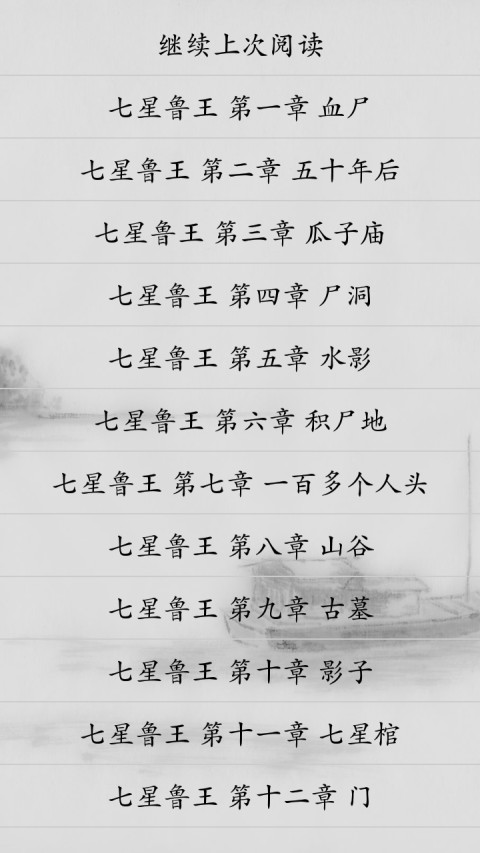 继续上次阅读
七星鲁王 第一章 血尸
七星鲁王 第二章 五十年后
七星鲁王 第三章 瓜子庙
七星鲁王 第四章 尸洞
七星鲁王 第五章 水影
七星鲁王 第六章 积尸地
七星鲁王 第七章 一百多个人头
七星鲁王 第八章 山谷
七星鲁王 第九章 古墓
七星鲁王 第十章 影子
七星鲁王 第十一章 七星棺
七星鲁王 第十二章 门